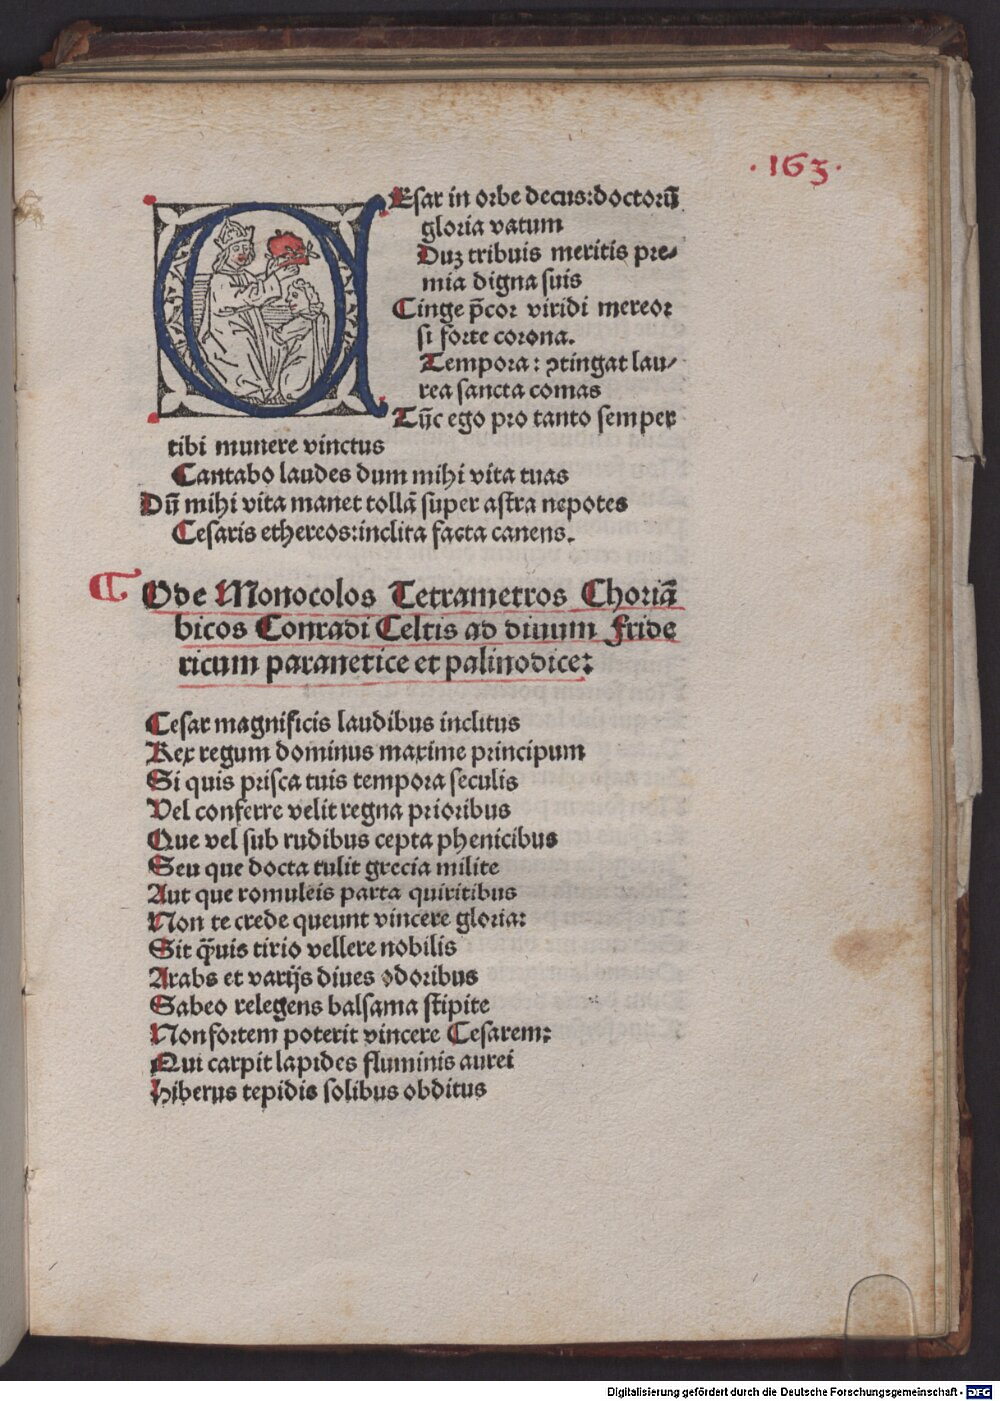 ·163·
CEsar in orbe decus:doctorū
gloria vatum
Duʒ tribuis meritis pre⸗
mia digna suis
Cinge p̄cor viridi mereor
si forte corona.
Tempora: ꝯtingat lau⸗
rea sancta comas
Tūc ego pro tanto semper
tibi munere vinctus
Cantabo laudes dum mihi vita tuas
Dū mihi vita manet tollā super astra nepotes
Cesaris ethereos:inclita facta canens.
Ode Monocolos Tetrametros Choriā
bicos Conradi Celtis ad diuum Fride
ricum paranetice et palinodice:
Cesar magnificis laudibus inclitus
Rex regum dominus maxime principum
Si quis prisca tuis tempora seculis
Vel conferre velit regna prioribus
Que vel sub rudibus cepta phenicibus
Seu que docta tulit grecia milite
Aut que romuleis parta quiritibus
Non te crede queunt vincere gloria:
Sit q̄uis tirio vellere nobilis
Arabs et varijs diues odoribus
Sabeo relegens balsama stipite
Non fortem poterit vincere Cesarem:
Qui carpit lapides fluminis aurei
Hiberus tepidis solibus obditus
Digitalisierung gefördert durch die Deutsche Forschungsgemeinschaft - DFG